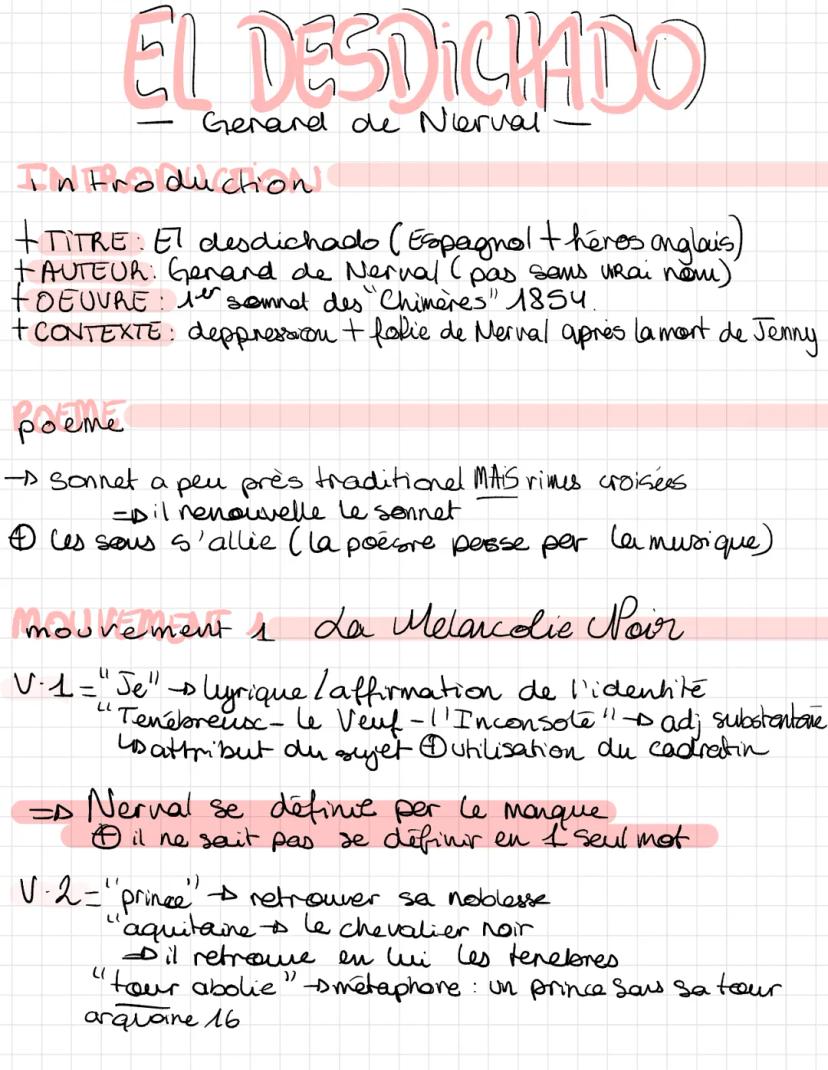 EL DESDiCHADO
— Gerard de Nerval —
INTRODUCTION
introduction
+ TITRE : El desdichado (Espagnol + héros anglais)
+ AUTEUR : Gerard de Nerval (pas sans vrai nom)
+ OEUVRE : 1er sonnet des "Chimères" 1854.
+ CONTEXTE : deppression + folie de Nerval après la mort de Jenny
POEME
poeme
→ sonnet a peu près traditionel MAiS rimes croisées
⇒ il renouvelle le sonnet
⊕ les sons s'allie (la poésie passe par la musique)
MOUVEMENT 1
mouvement 1 La Melancolie Noir
V.1 = "Je" → lyrique / affirmation de l'identité
"Tenébreux - le Veuf - l'Inconsolé" → adj
↳ attribut du sujet ⊕ utilisation du cadratin
⇒ Nerval se définit par le manque
⊕ il ne sait pas se définir en 1 seul mot
V.2 = "prince" → retrouver sa noblesse
"aquitaine → le chevalier noir
⇒ il retrouve en lui les tenebres
"tour abolie" → métaphore : un prince sans sa tour
arquaine 16